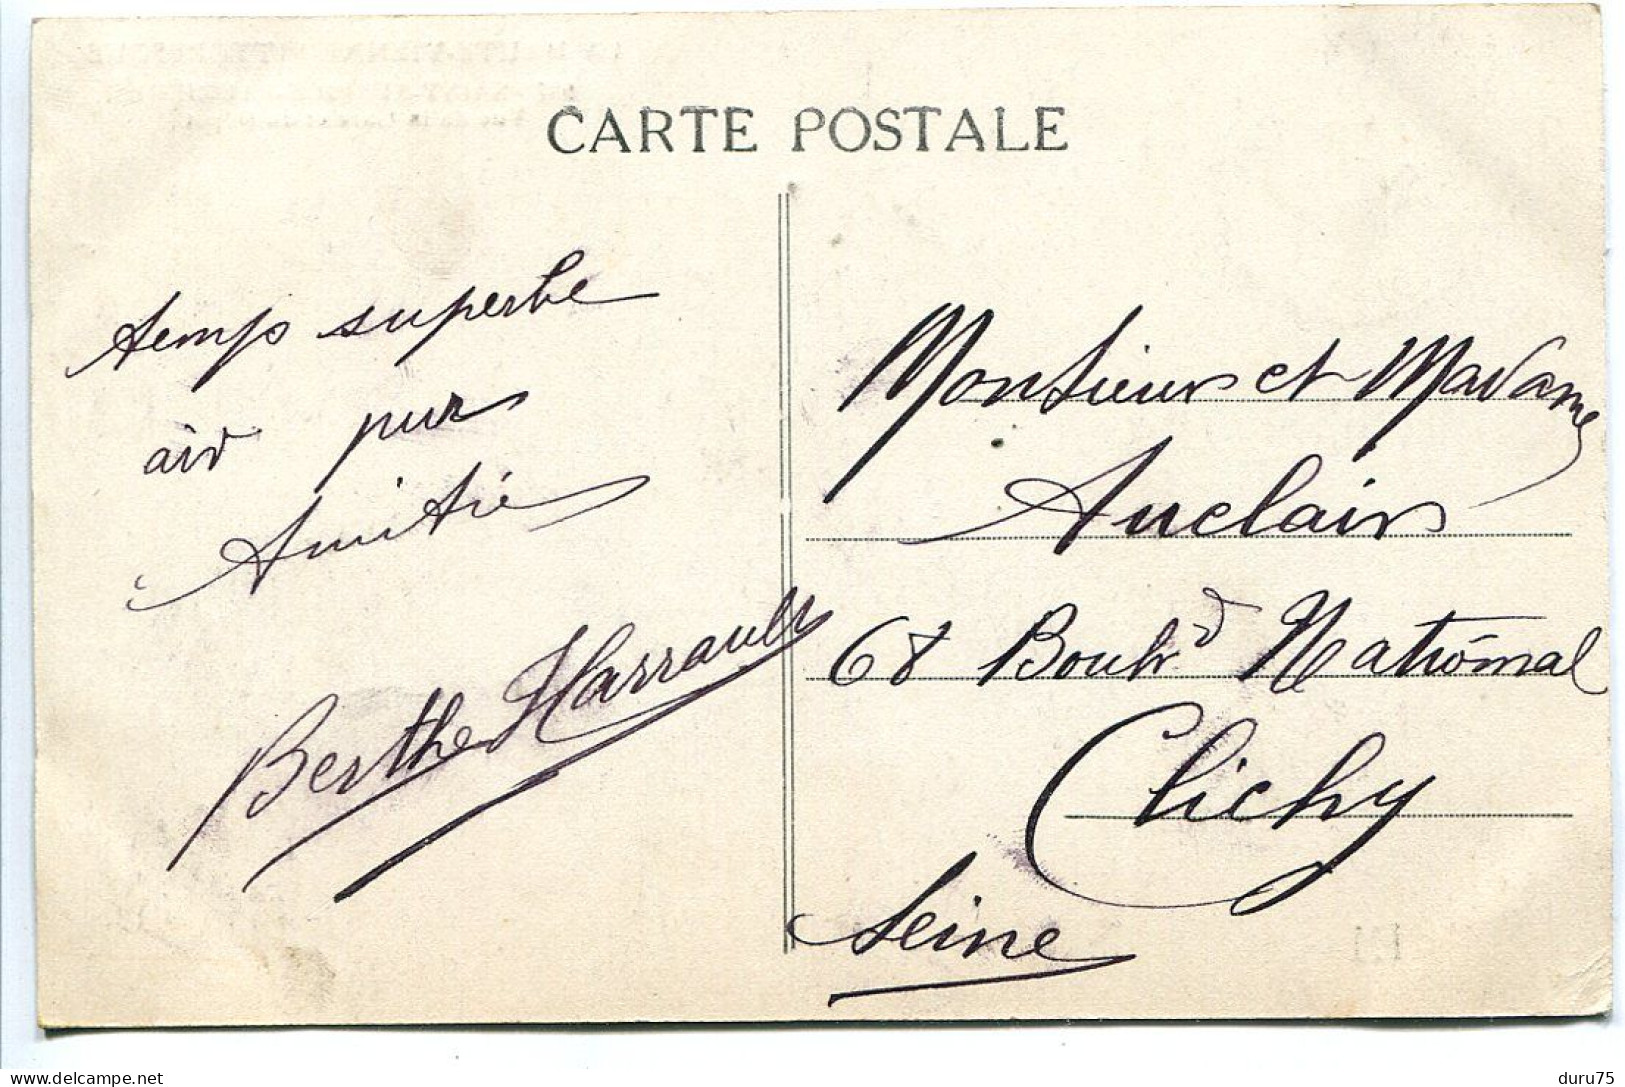 CARTE POSTALE
temps superbe
air pur
Amitié
Berthe Harrault
Monsieur et Madame
Auclair
68 Boulvd National
Clichy
Seine
delcampe.net
duru75